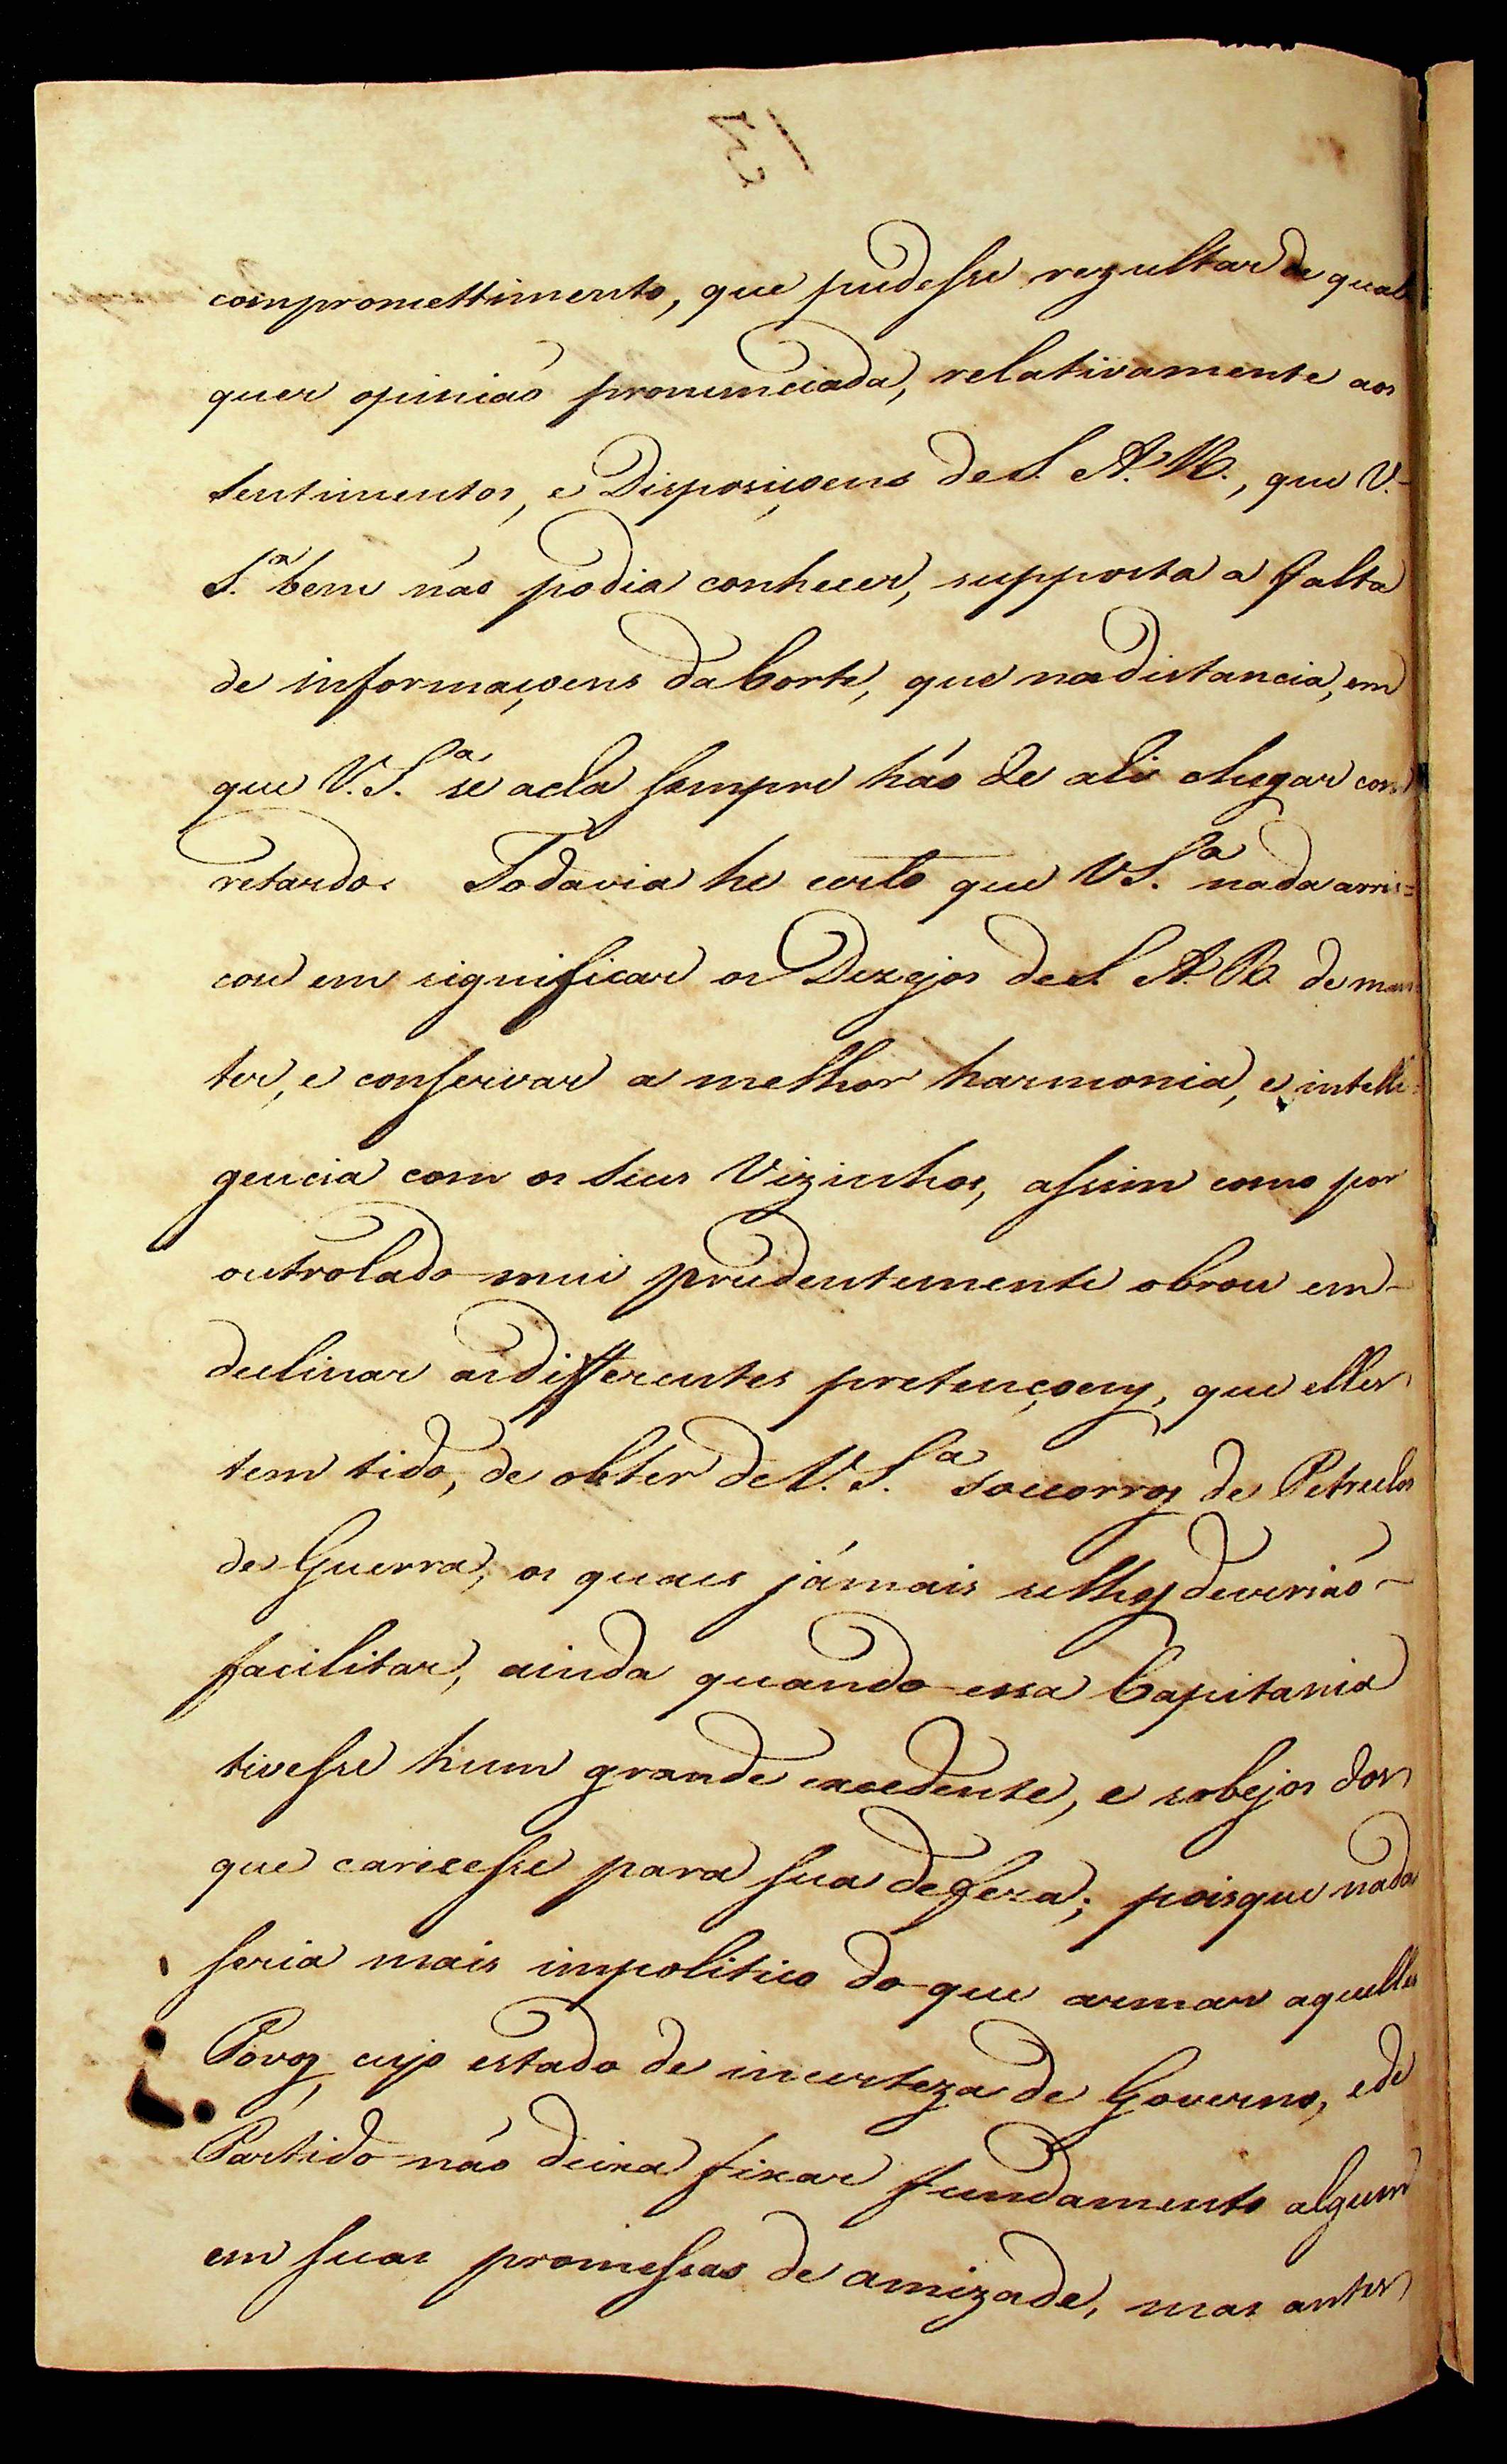 compromettimento, que pudesse rezultar de qual
quer opinião pronunciada, relativamente aos
sentimentos, e Disposiçoens de S. A. R., que V.
S.ª bem não podia conhecer, supposta a falta
de informaçoens da Corte, que na distancia, em
que V. S.ª se acha sempre hão de ali chegar com
retardo. Todavia he certo que V S.ª nada arris=
cou em significar os Dezejos de S. A. R. de man
ter, e conservar a melhor harmonia, e intelli=
gencia com os seus Vizinhos, assim como por
outro lado mui prudentemente obrou em
declinar as differentes pretençoens, que elles
tem tido, de obter de V. S.ª soccorros de Petrechos
de Guerra, os quaes jámais se lhes deverião
facilitar, ainda quando essa Capitania
tivesse hum grande excedente, e sobejos dos
que carecesse para sua defeza; pois que nada
seria mais impolitico do que armar aquelles
Povos, cujo estado de incerteza de Governo, e de
Partido não deixa fixar fundamento algum
em suas promessas de amizade, mas antes